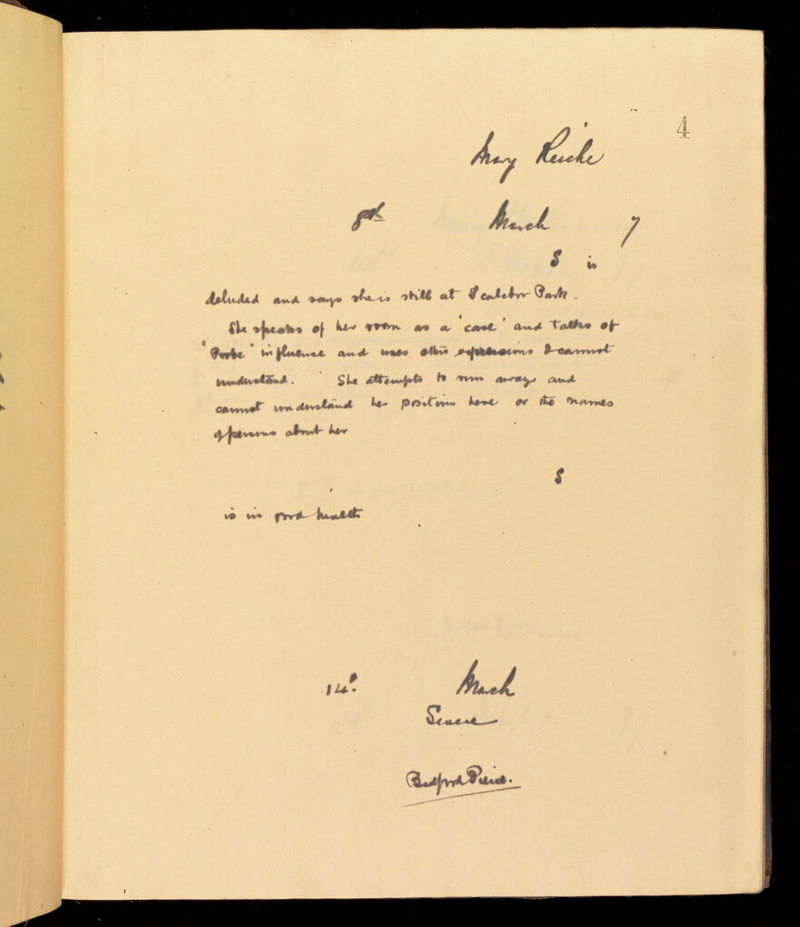 4
Mary Reiche
8th March 7
S is
deluded and says she is still at Scalebor Park.
She speaks of her room as a 'case' and talks of
'Probe' influence and uses other expressions I cannot
understand. She attempts to run away and
cannot understand her position here or the names
of persons about her
S
is in good health
14th March
Seven
Bedford Pierce.